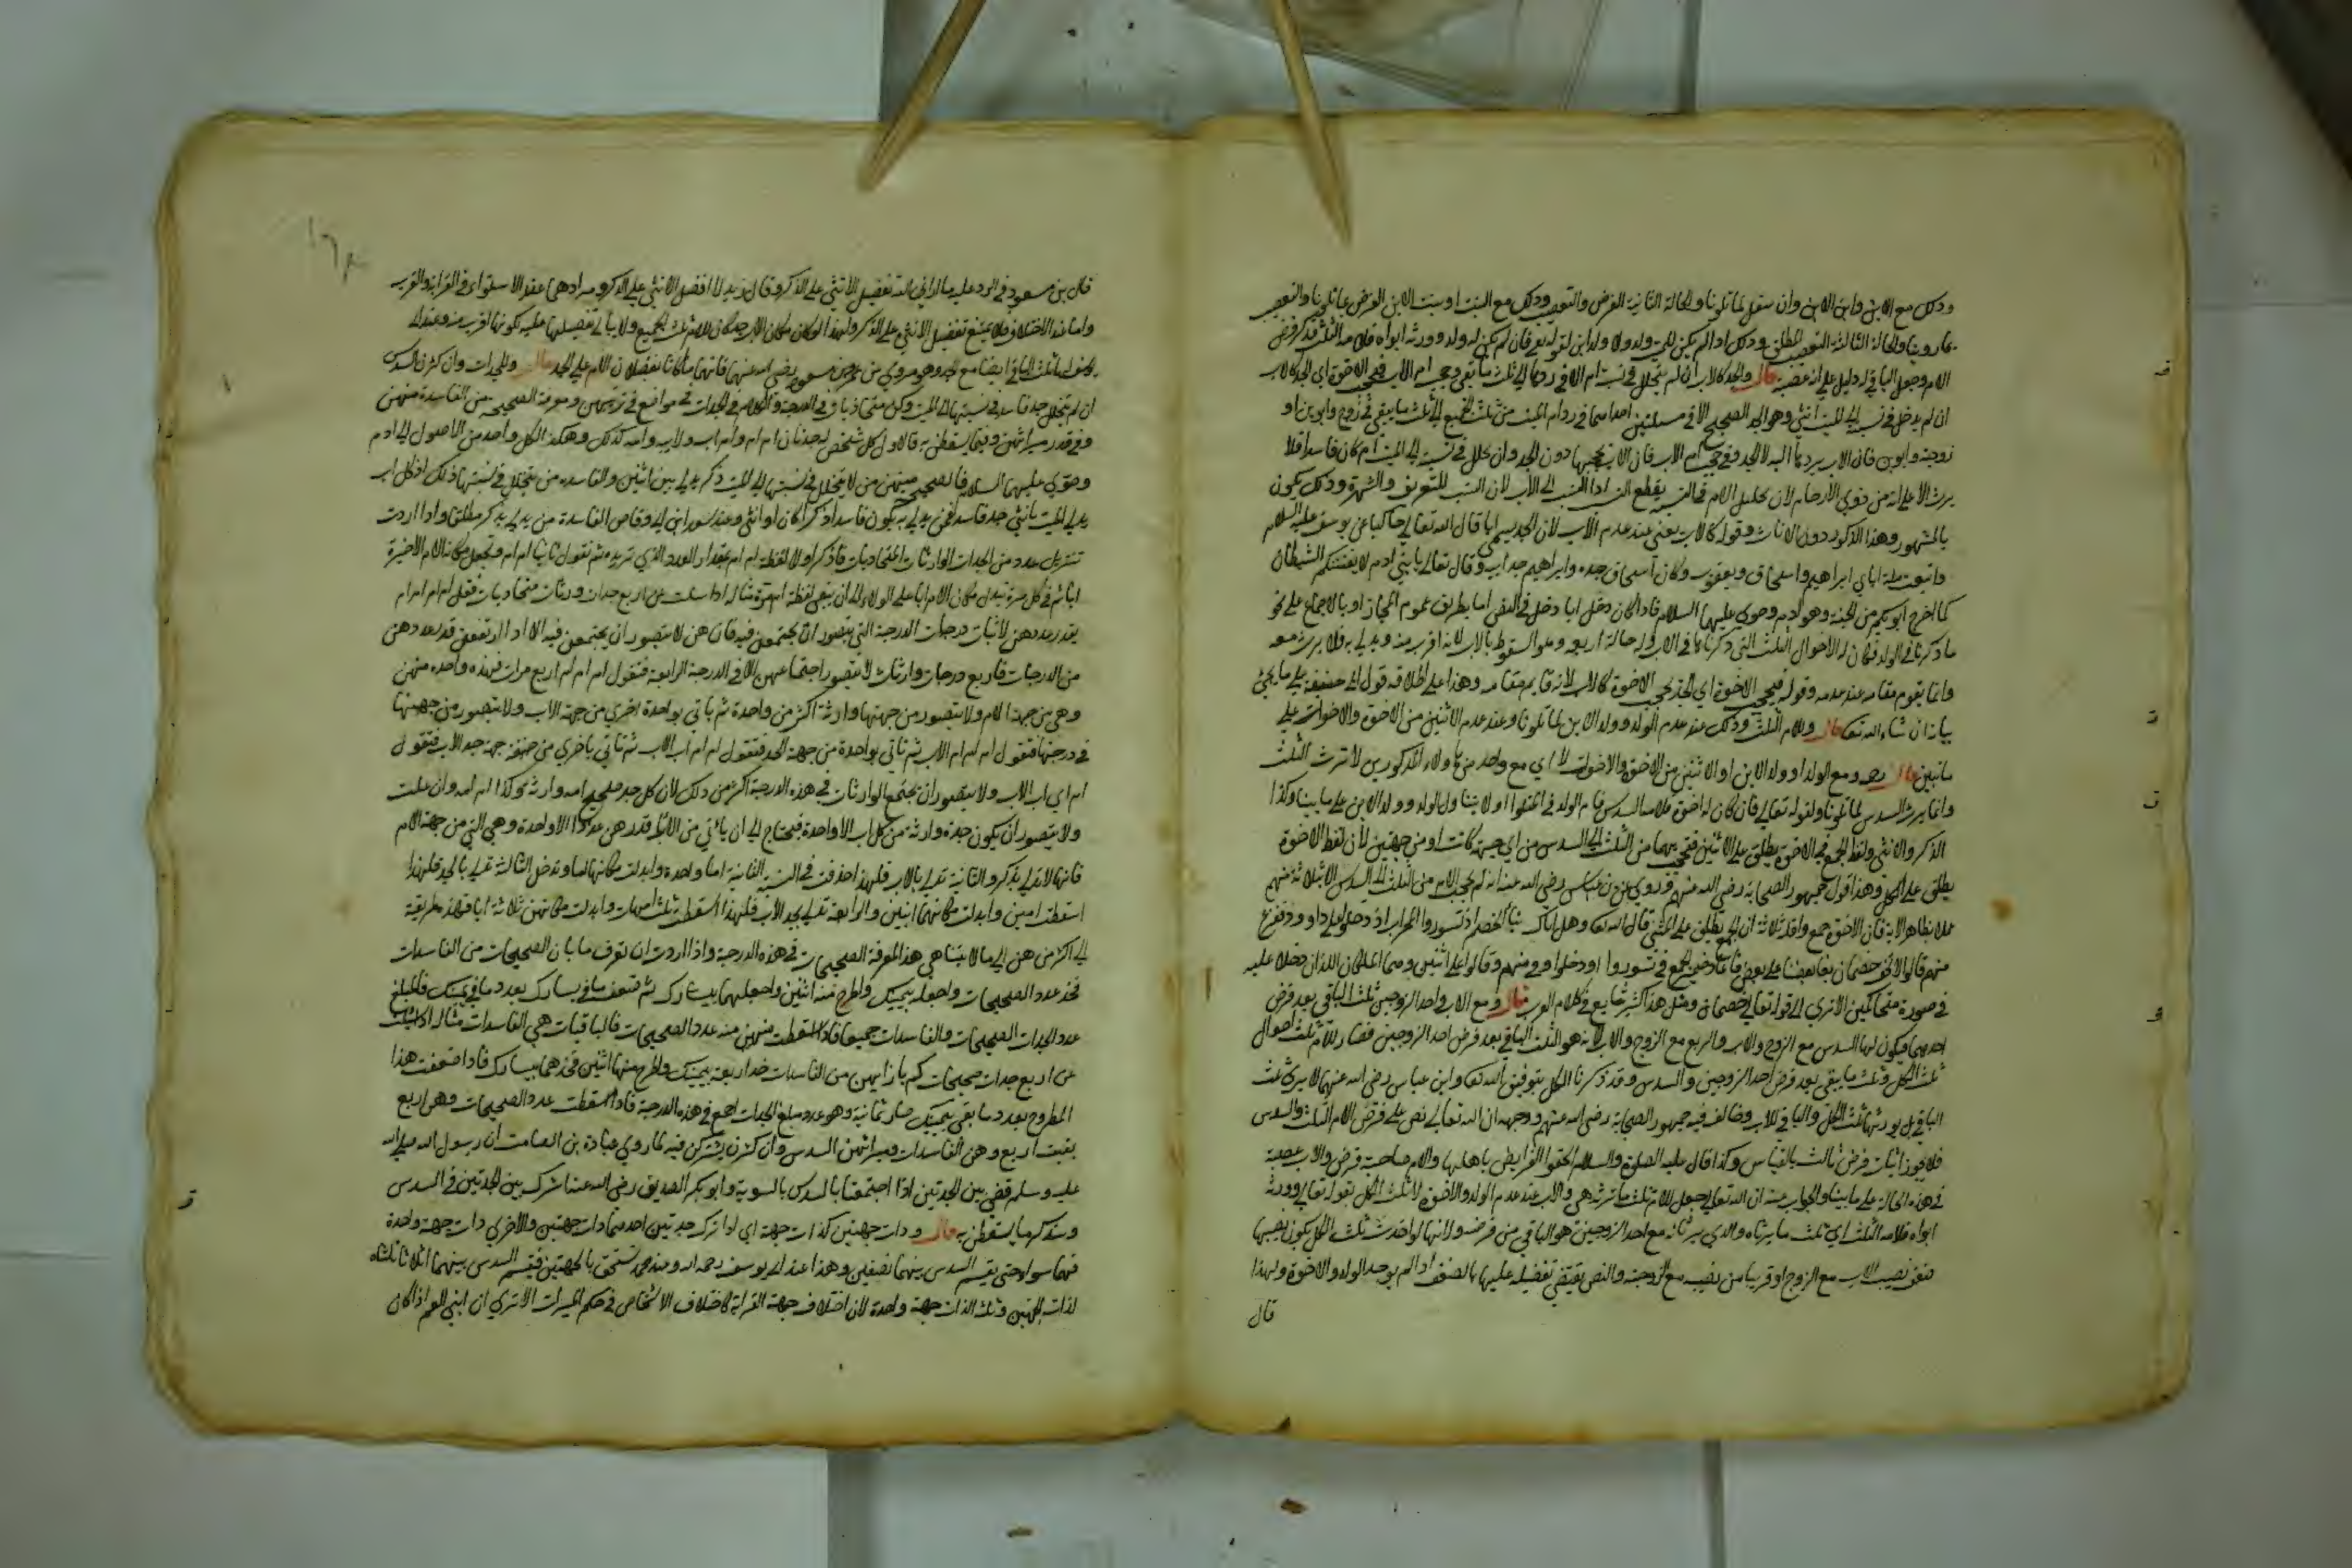 وذلك مع الابن وابن الابن وان سفل لما تلونا والحالة الثانية الفرض والتعصيب وذلك مع البنت او بنت الابن الفرض بما تلونا والتعصيب
بما روينا والحالة الثالثة التعصيب المطلق وذلك اذا لم يكن للميت ولد ولا ولد ابن لقوله تع فان لم يكن له ولد وورثه ابواه فلامه الثلث فذكر فرض
الام وجعل الباقي له دليل على انه عصبة قال والجد كالاب ان لم يتخلل في نسبته ام الا في ردها الى ثلث ما بقي وحجب ام الاب فيحجب الاخوة اي الجد كالاب
ان لم يدخل في نسبته الى الميت انثى وهو الجد الصحيح الا في مسئلتين احداهما في رد ام الميت من ثلث الجميع الى ثلث ما يبقى في زوج وابوين او
زوجة وابوين فان الاب يردها اليه لا الجد وفي حجب ام الاب فان الاب يحجبها دون الجد وان تخلل في نسبته الى الميت ام كان فاسدا فلا
يرث الا على انه من ذوي الارحام لان تخليل الام في النسبة يقطع النسب اذا النسب الى الاب لان النسب للتعريف والشهرة وذلك يكون
بالمشهور وهذا الذكور دون الاناث وقوله كالاب يعني عند عدم الاب لان الجد يسمى ابا قال الله تعالى حاكيا عن يوسف عليه السلام
واتبعت ملة اباي ابراهيم واسحاق ويعقوب وكان اسحاق جده وابراهيم جد ابيه وقال تعالى يا بني ادم لا يفتننكم الشيطان
كما اخرج ابويكم من الجنة وهو ادم وحوى عليهما السلام فاذا كان دخل ابا دخل في النص اما بطريق عموم المجاز او بالاجماع على نحو
ما ذكرنا في الولد فكان له الاحوال الثلث التي ذكرناها في الاب وله حالة اربعه وهو السقوط بالاب لانه اقرب منه ويدلي به فلا يرث معه
وانما يقوم مقامه عند عدمه وقوله فيحجب الاخوة اي الجد يحجب الاخوة كالاب لانه قايم مقامه وهذا على اطلاقه قول ابي حنيفة على ما يجيئ
بيانه ان شاء الله تعا قال وللام الثلث وذلك عند عدم الولد وولد الابن لما تلونا وعند عدم الاثنين من الاخوة والاخوات على
ما نبين قال رحمه ومع الولد او ولد الابن او الاثنين من الاخوة والاخوات لا اي مع واحد من هاولاء المذكورين لا ترث الثلث
وانما يرث السدس لما تلونا ولقوله تعالى فان كان له اخوة فلامه السدس فاسم الولد في المتلوا اولا يتناول الولد وولد الابن على ما بينا وكذا
الذكر والانثى ولفظ الجمع في الاخوة يطلق على الاثنين فتحجب بهما من الثلث الى السدس من اي جهة كانت او من جهتين لان لفظ الاخوة
يطلق على الكل وهذا قول جمهور الصحابة رضي الله عنهم وروي عن ابن عباس رضي الله عنه انه لم يحجب الام من الثلث الى السدس الا بثلاثة منهم
عملا بظاهر الاية فان الاخوة جمع واقله ثلاثة ان الجمع يطلق على المثنى قال الله تعا وهل اتاك نبأ الخصم اذ تسوروا المحراب اذ دخلوا على داوود ففزع
منهم قالوا لا تخف خصمان بغى بعضنا على بعض فاعاد ضمير الجمع في تسوروا او دخلوا وفي منهم وقالوا على اثنين وهما الملكان اللذان دخلا عليه
في صورة متحاكمين الا ترى الى قوله تعالى خصمان ومثل هذا كثير شايع في كلام العرب قال ومع الاب واحد الزوجين ثلث الباقي بعد فرض
احدهما فيكون لها السدس مع الزوج والاب والربع مع الزوج والاب لانه هو الثلث الباقي بعد فرض احد الزوجين فصار للام ثلث احوال
ثلث الكل وثلث ما يبقى بعد فرض احد الزوجين والسدس وقد ذكرنا الكل بتوفيق الله تعا وابن عباس رضي الله عنهما لا يرى ثلث
الباقي بل يورثها ثلث الكل والباقي للاب وخالف فيه جمهور الصحابة رضي الله عنهم ووجهه ان الله تعالى نص على فرض الام الثلث والسدس
فلا يجوز اثبات فرض ثالث بالقياس وكذا قال عليه الصلوة والسلام الحقوا الفرايض باهلها والام صاحبة فرض والاب عصبة
في هذه الحالة على ما بينا والجواب عنه ان الله تعالى جعل للام ثلث ما ترثه هي والاب عند عدم الولد والاخوة لا ثلث الكل لقوله تعالى وورثه
ابواه فلامه الثلث اي ثلث ما يرثاه والذي يرثانه مع احد الزوجين هو الباقي من فرضه ولانها لو اخذت ثلث الكل يكون نصيبها
ضعف نصيب الاب مع الزوج او قريبا من نصيبه مع الزوجة والنص يقتضي تفضيله عليها بالضعف اذا لم يوجد الولد والاخوة ولهذا
قال
قال بن مسعود في الرد عليه ما اراني الله تفضيل الانثى على الذكر وقال زيد لا افضل الانثى على الذكر ومرادهما عند الاستواء في القرابة والقرب
واما عند الاختلاف فلا يمتنع تفضيل الانثى على الذكر ولهذا لو كان مكان الاب جد كان للام ثلث الجميع ولا يبالى بتفضيلها عليه لكونها اقرب منه وعند ابي
يوسف لها ثلث الباقي ايضا مع الجد وهو مروي عن عمر وبن مسعود رضي الله عنهما فانهما ما كانا يفضلان الام على الجد قال وللجدات وان كثرن السدس
ان لم يتخلل جد فاسد في نسبتها الى الميت وكن متحاذيات في الدرجة والكلام في الجدات في مواضع في ترتيبهن ومعرفة الصحيحة من الفاسدة منهن
وفي قدر ميراثهن وفيما يسقطن به فالاول كل شخص له جدتان ام ام وام اب ولابيه وامه كذلك وهكذا لكل واحد من الاصول الى ادم
وحوى عليهما السلام فالصحيح منهن من لا يتخلل في نسبتها الى الميت ذكر يدلي بين انثيين والفاسده من يتخلل في نسبتها ذلك اذ كل اب
يدلي الميت بانثى جد فاسد فمن يدلي به يكون فاسدا ذكرا كان او انثى وعند سعد بن ابي وقاص الفاسدة من يدلي بذكر مطلقا واذا اردت
تنزيل عدد من الجدات الوارثات المتحاذيات فاذكر اولا لفظة ام ام بمقدار العدد الذي تريده ثم تقول ثانيا ام ام وتجعل مكان الام الاخيرة
ابا ثم في كل مرة تبدل مكان الام ابا على الولاء الى ان يبقى لفظة ام مرة مثاله اذا سئلت عن اربع جدات وارثات متحاذيات فقل ام ام ام ام
بقدر عددهن لاثبات درجات الدرجة التي يتصور ان يجتمعن فيه فان هن لا يتصور ان يجتمعن فيه الا اذا ارتفعن قدر عددهن
من الدرجات فاربع درجات وارثات لا يتصور اجتماعهن الا في الدرجة الرابعة فتقول ام ام ام ام اربع مرات فهذه واحده منهن
وهي من جهة الام ولا يتصور من جهتها وارثة اكثر من واحدة ثم ياتي بواحدة اخرى من جهة الاب ولا يتصور من جهتها
في درجتها فتقول ام ام ام الاب ثم تاتي بواحدة من جهة الجد فتقول ام ام اب الاب ثم تاتي باخرى من جهة جد الاب فتقول
ام ابي اب الاب ولا يتصور ان يجتمع الوارثات في هذه الدرجة اكثر من ذلك لان كل جد صحيح امه وارثة وكذا ام امه وان علت
ولا يتصور ان يكون جدة وارثة من كل اب الا واحدة فيحتاج الى ان ياتي من الاباء قدر هن عددا الا واحدة وهي التي من جهة الام
فانها لا تدلي بذكر والثانية تدلي بالاب فلهذا حذفت في النسبة الثانية اما واحدة وابدلت مكانها ابا وتدخل الثالثة تدلي بالجد فلهذا
اسقطت امين وابدلت مكانهما ابين والرابعة تدلي بجد الاب فلهذا اسقطت ثلث امهات وابدلت مكانهن ثلاثة ابا فهذه طريقة
الى اكثر من هن الى ما لا يتناهى هذا لمعرفة الصحيحات في هذه الدرجة واذا اردت ان تعرف ما بان الصحيحات من الفاسدات
فخذ عدد الصحيحات واجعله بيمينك واطرح منه اثنين واجعلهما بيسارك ثم ضعف ما في يسارك بعدد ما في يمينك فالمبلغ
عدد الجدات الصحيحات والفاسدات جميعا فاذا اسقطت منه عدد الصحيحات فالباقيات هي الفاسدات مثاله اذا سئلت
عن اربع جدات صحيحات كم بازايهن من الفاسدات خذ اربعة بيمينك واطرح منها اثنين فخذهما بيسارك فاذا اضعفت هذا
المطروح بعدد ما بقي بيمينك صار ثمانية وهو عدد مبلغ الجدات اجمع في هذه الدرجة فاذا اسقطت عدد الصحيحات وهن اربع
بقيت اربع وهن الفاسدات وميراثهن السدس وان كثرن يشتركن فيه لما روي عبادة بن الصامت ان رسول الله صلى الله
عليه وسلم قضى بين الجدتين اذا اجتمعتا بالسدس بالسوية وابو بكر الصديق رضي الله عنه اشرك بين الجدتين في السدس
وسنذكر ما يسقطن به قال وذات جهتين كذات جهة اي اذا ترك جدتين احدهما ذات جهتين والاخرى ذات جهة واحدة
فهما سواء حتى يقسم السدس بينهما نصفين وهذا عند ابي يوسف رحمه الله وعند محمد تستحق بالجهتين فيقسم السدس بينهما اثلاثا ثلثاه
لذات الجهتين وثلثه لذات جهة واحدة لان اختلاف جهة القرابة كاختلاف الاشخاص في حكم الميراث الا ترى ان ابني العم اذا كان